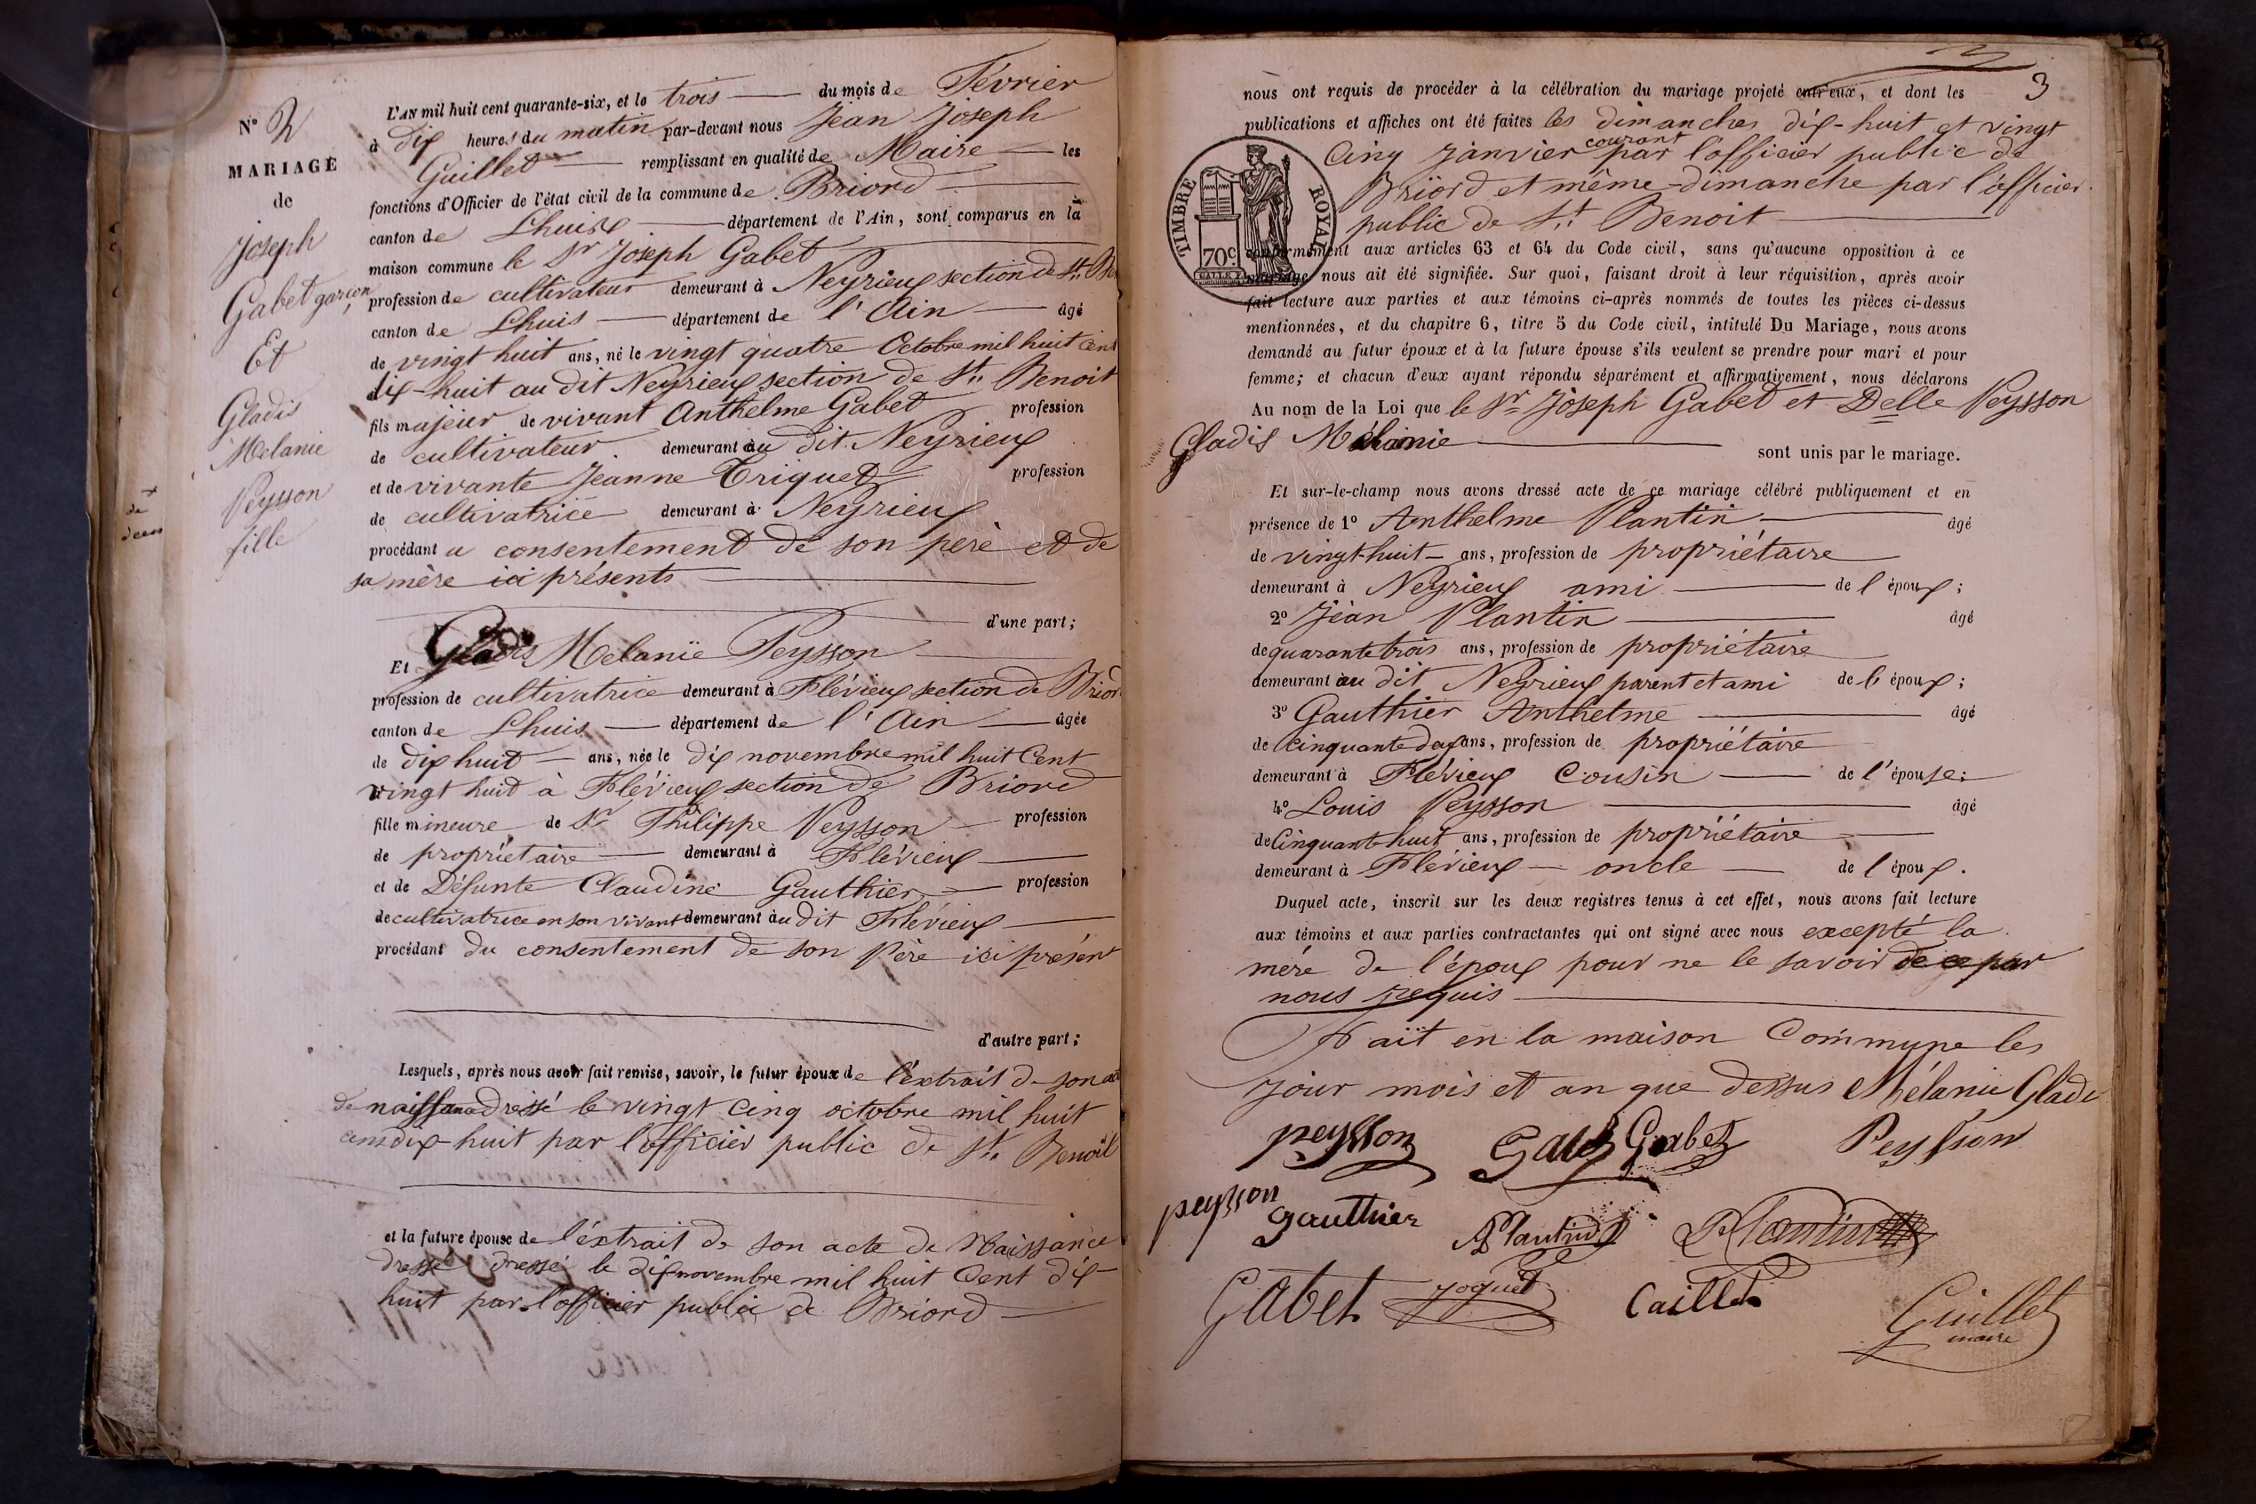 N° 2
MARIAGE
de
Joseph
Gabet garçon,
Et
Gladis
Melanie
Peysson
fille
L'AN mil huit cent quarante-six, et le trois du mois de Février
à dix heures du matin par-devant nous Jean Joseph
Guillet remplissant en qualité de Maire les
fonctions d'Officier de l'état civil de la commune de Briord
canton de Lhuis département de l'Ain, sont comparus en la
maison commune le Sr Joseph Gabet
profession de cultivateur demeurant à Neyrieux section de St.
canton de Lhuis département de l'Ain âgé
de vingt huit ans, né le vingt quatre Octobre mil huit cent
dix-huit au dit Neyrieux section de St. Benoit
fils majeur de vivant Anthelme Gabet profession
de cultivateur demeurant au dit Neyrieux
et de vivante Jeanne Triquet profession
de cultivatrice demeurant à Neyrieux
procédant u consentement de son père et de
sa mère ici présents
d'une part;
Et Gladis Melanïe Peysson
profession de cultivatrice demeurant à Flévieux section de Briord
canton de Lhuis département de l'Ain âgée
de dix huit ans, née le dix novembre mil huit Cent
vingt huit à Flévieux section de Briord
fille mineure de Sr Philippe Peysson profession
de propriétaire demeurant à Flévieux
et de Défunte Claudine Gauthier profession
de cultivatrice en son vivant demeurant au dit Flévieux
procédant du consentement de son Père ici présent
d'autre part;
Lesquels, après nous avoir fait remise, savoir, le futur époux de l'extrait de son
de naissance dressé le vingt cinq octobre mil huit
cens dix-huit par l'officier public de St. Benoit
et la future épouse de l'extrait de son acte de Naissance
dressé dressé le dix novembre mil huit Cent dix-
huit par l'officier public de Briord
3
nous ont requis de procéder à la célébration du mariage projeté entr'eux, et dont les
publications et affiches ont été faites les dimanches dix-huit et vingt
courant
Cinq Janvier par l'officier public de
Briord et même dimanche par l'officier
public de St. Benoit
TIMBRE ROYAL
70c
conformément aux articles 63 et 64 du Code civil, sans qu'aucune opposition à ce
mariage nous ait été signifiée. Sur quoi, faisant droit à leur réquisition, après avoir
fait lecture aux parties et aux témoins ci-après nommés de toutes les pièces ci-dessus
mentionnées, et du chapitre 6, titre 5 du Code civil, intitulé Du Mariage, nous avons
demandé au futur époux et à la future épouse s'ils veulent se prendre pour mari et pour
femme; et chacun d'eux ayant répondu séparément et affirmativement, nous déclarons
Au nom de la Loi que le Sr Joseph Gabet et Delle Peysson
Gladis Mélanie sont unis par le mariage.
Et sur-le-champ nous avons dressé acte de ce mariage célébré publiquement et en
présence de 1° Anthelme Plantin âgé
de vingt-huit ans, profession de propriétaire
demeurant à Neyrieux ami de l'époux;
2° Jean Plantin âgé
de quarante trois ans, profession de propriétaire
demeurant au dit Neyrieux parent et ami de l'époux;
3° Gauthier Anthelme âgé
de cinquante deux ans, profession de propriétaire
demeurant à Flévieux Cousin de l'épouse;
4° Louis Peysson âgé
de Cinquante huit ans, profession de propriétaire
demeurant à Flévieux oncle de l'époux.
Duquel acte, inscrit sur les deux registres tenus à cet effet, nous avons fait lecture
aux témoins et aux parties contractantes qui ont signé avec nous excepté la
mère de l'époux pour ne le savoir de ce par
nous requis
Fait en la maison Commune les
jour mois et an que dessus Mélanie Glade
peysson Gabet Peysson
peysson gauthier Plantin Plantin
Gabet joguet Caillet Guillet
maire